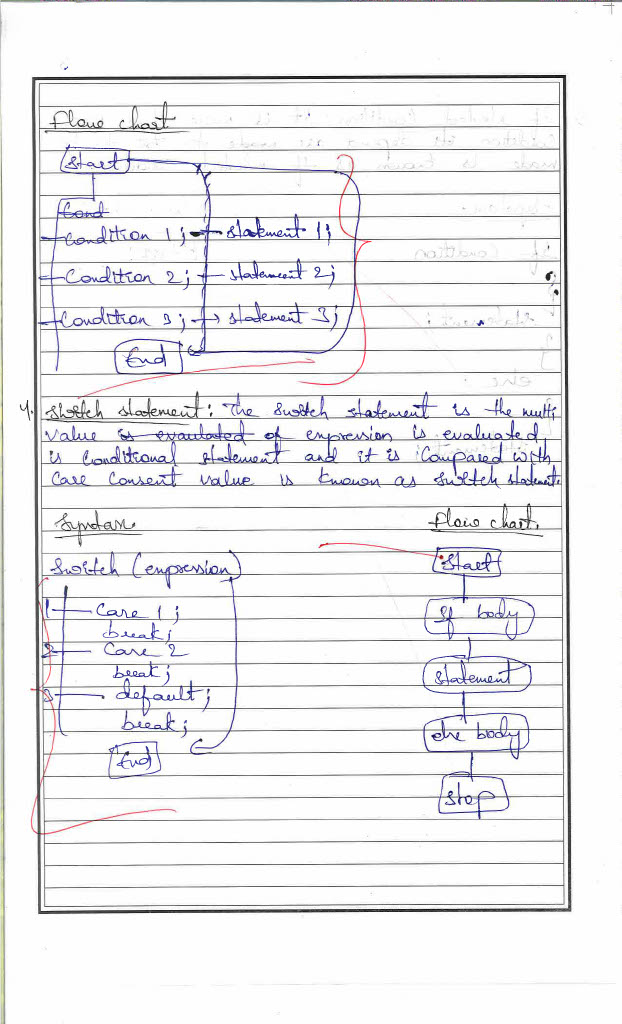 Flow chart
Start
Cond
Condition 1; → statement 1;
Condition 2; → statement 2;
Condition 3; → statement 3;
End
4. Switch statement: The switch statement is the multi
value is evaulated of expression is evaluated
is Conditional statement and it is Compared with
Case Consent value is known as switch statement.
Syntax
Switch (expression)
1 Case 1;
break;
2 Case 2
break;
3 default;
break;
End
Flow chart.
Start
If body
statement
else body
stop